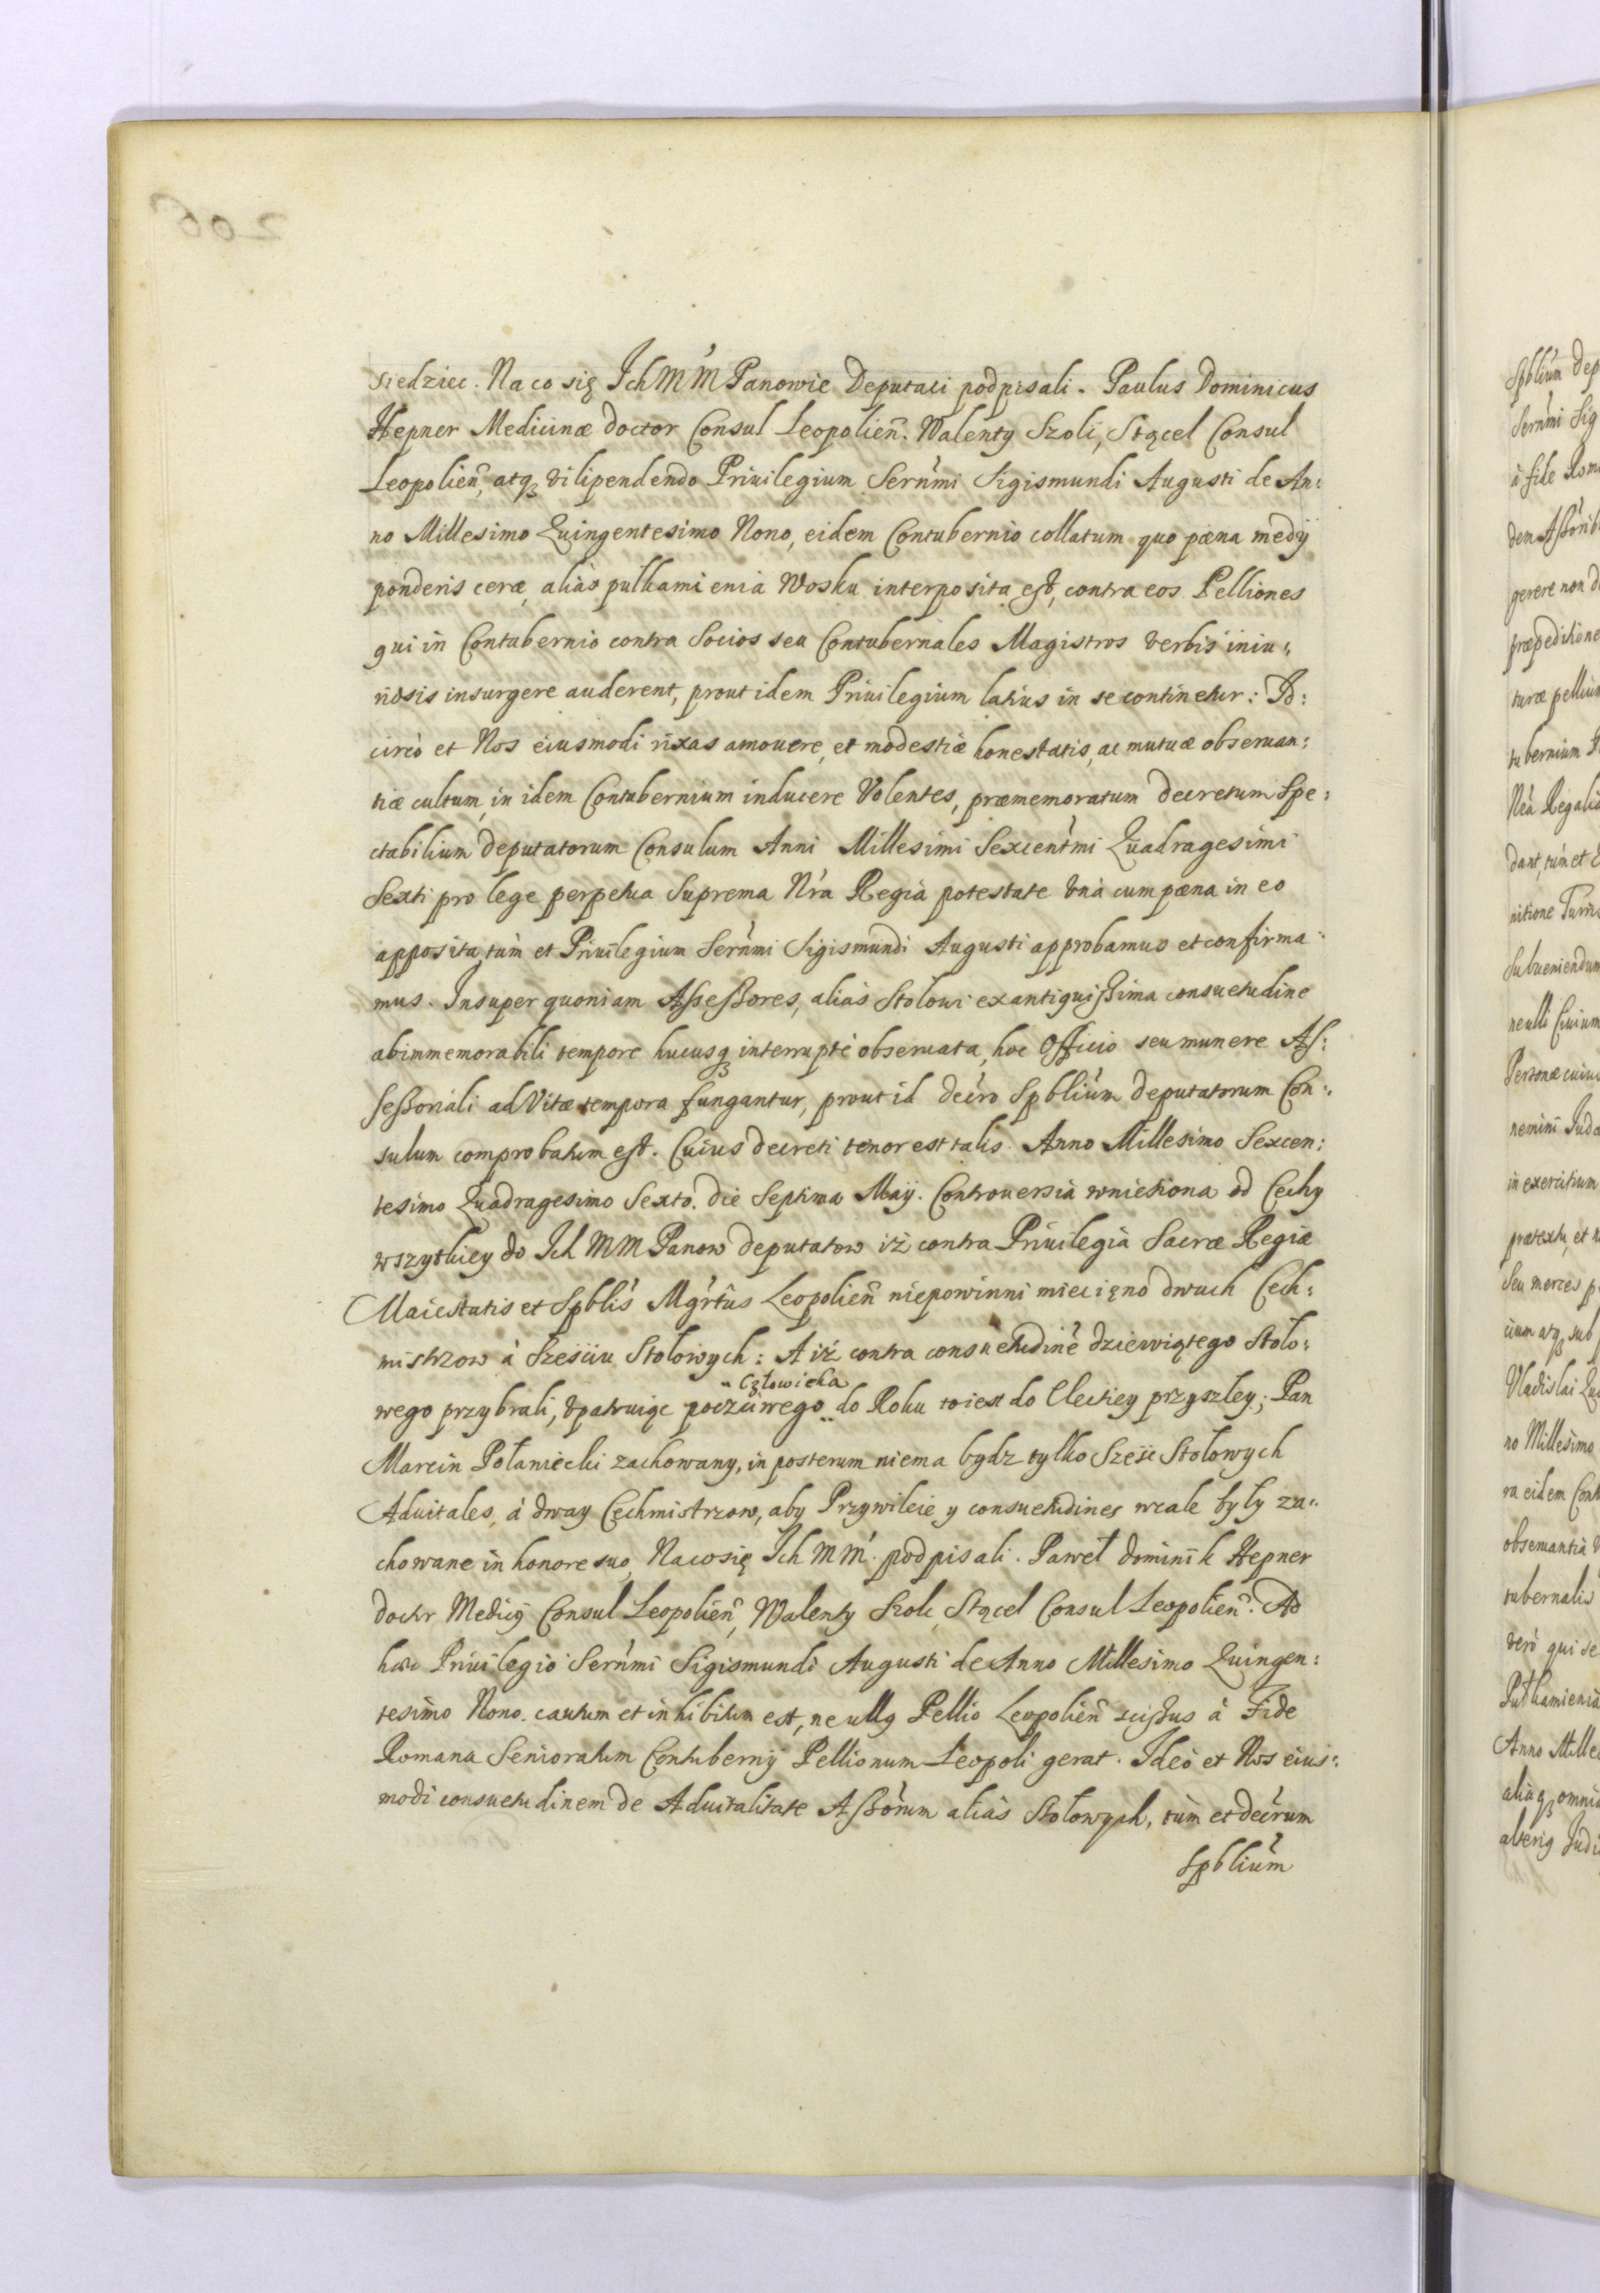 siedziec. Na co się Ich M M Panowie Deputaci podpisali. Paulus Dominicus
Hepner Medicinæ Doctor Consul Leopolien. Walenty Szolc, Stącel Consul
Leopolien, atq vilipendendo Priuilegium Sernmi Sigismundi Augusti de An:
no Millesimo Quingentesimo Nono, eidem Contubernio collatum quo pæna medij
ponderis ceræ, alias pulkamienia Wosku interposita est, contra eos Pelliones
qui in Contubernio contra Socios seu Contubernales Magistros verbis iniu:
riosis insurgere auderent, prout idem Priuilegium latius in se continetur: Id:
circò et Nos eiusmodi rixas amouere, et modestiæ honestatis, ac mutuæ obseruan:
tiæ cultum, in idem Contubernium inducere Volentes, præmemoratum decretum Spe:
ctabilium deputatorum Consulum Anni Millesimi Sexcentmi Quadragesimi
Sexti pro lege perpetua Suprema Nra Regia potestate vnà cum pæna in eo
apposita, tùm et Priuilegium Sernmi Sigismundi Augusti approbamus et confirma
mus. Insuper quoniam Assessores, alias Stolowi ex antiquissima consuetudine
ab immemorabili tempore hucusq interruptè obseruata, hoc Officio seu munere As:
sessoriali ad Vitæ tempora fungantur, prout id decro Spblium deputatorum Con:
sulum comprobatum est. Cuius decreti tenor est talis. Anno Millesimo Sexcen:
tesimo Quadragesimo Sexto. Die Septima Maij. Controuersia wniesiona od Cechy
wszytkiey do Ich MM Panow deputatow iż contra Priuilegia Sacræ Regiæ
Maiestatis et Spblis Mgrtus Leopolien niepowinni mieć ięno dwuch Cech:
mistrzow à Sześciu Stołowych: A iż contra consuetudinē dziewiątego Stoło:
wego przybrali, vpatruiąc poczciwego człowieka do Roku to iest do Electiey przyszłey; Pan
Marcin Połaniecki zachowany, in posterum niema bydz tylko Sześc Stołowych
Aduitales, à dway Cechmistrzow, aby Przywileie y consuetudines wcale były za:
chowane in honore suo, Na co się Ich M M podpisali. Paweł Dominik Hepner
doctor Medicij Consul Leopolien, Walenty Szolc Stącel Consul Leopolien. Ad
hæc Priuilegio Sernmi Sigismundi Augusti de Anno Millesimo Quingen:
tesimo Nono. cautum et inhibitum est, ne ullq Pellio Leopolien scissus à Fide
Romana Senioratum Contubernij Pellionum Leopoli gerat. Ideò et Nos eius:
modi consuetudinem de Aduitalitate Assorum alias Stołowych, tùm et decrum
Spblium